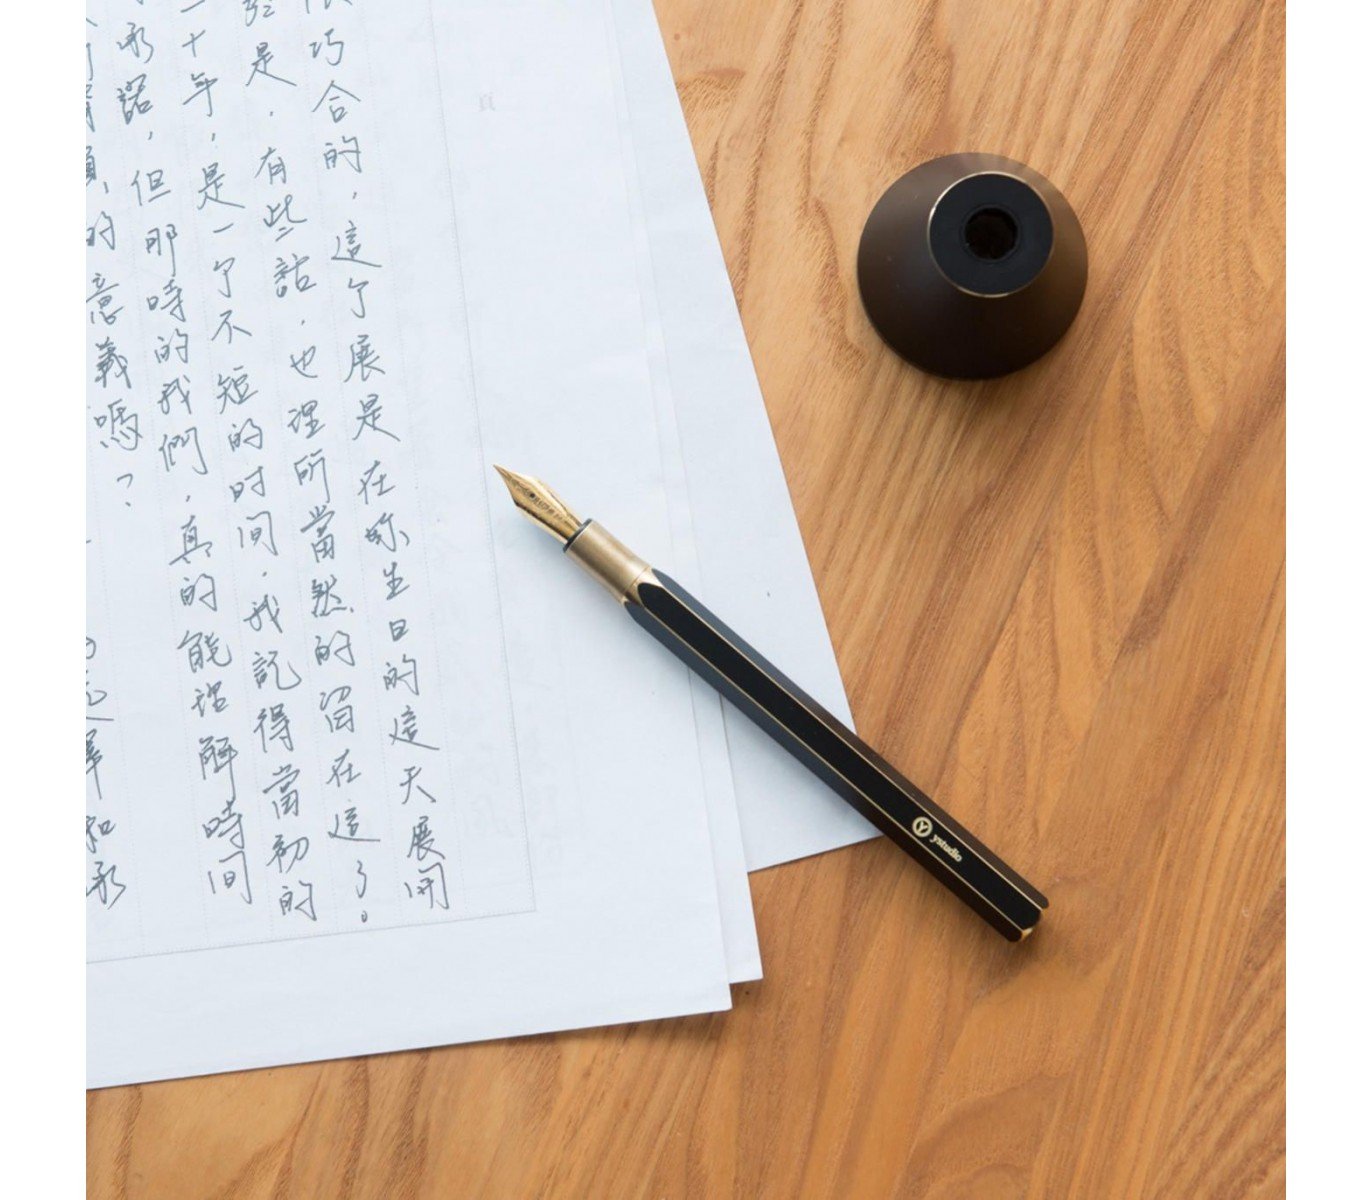 巧合的，這个展是在妳生日的這天展開
是，有些話，也理所當然的留在這了。
十年，是一个不短的时间，我記得當初的
承諾，但那時的我們，真的能理解時间
的意義嗎？
和承
ystudio